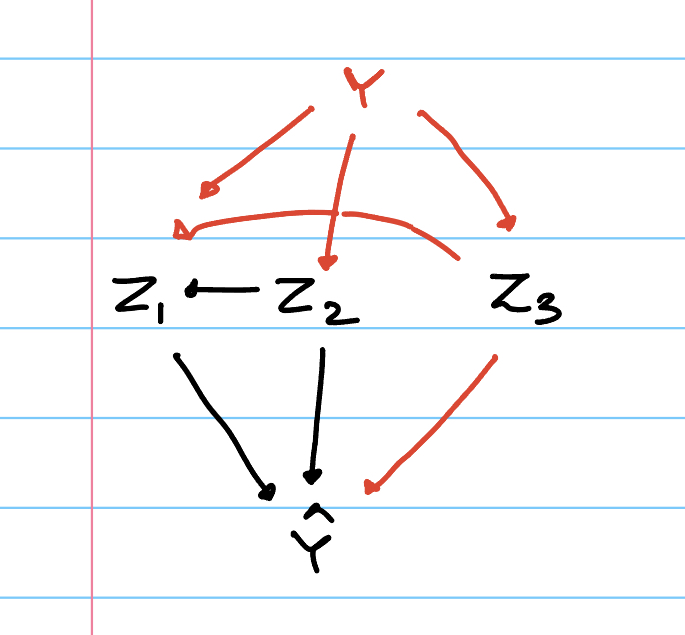 Y
Z₁ Z₂ Z₃
Ŷ